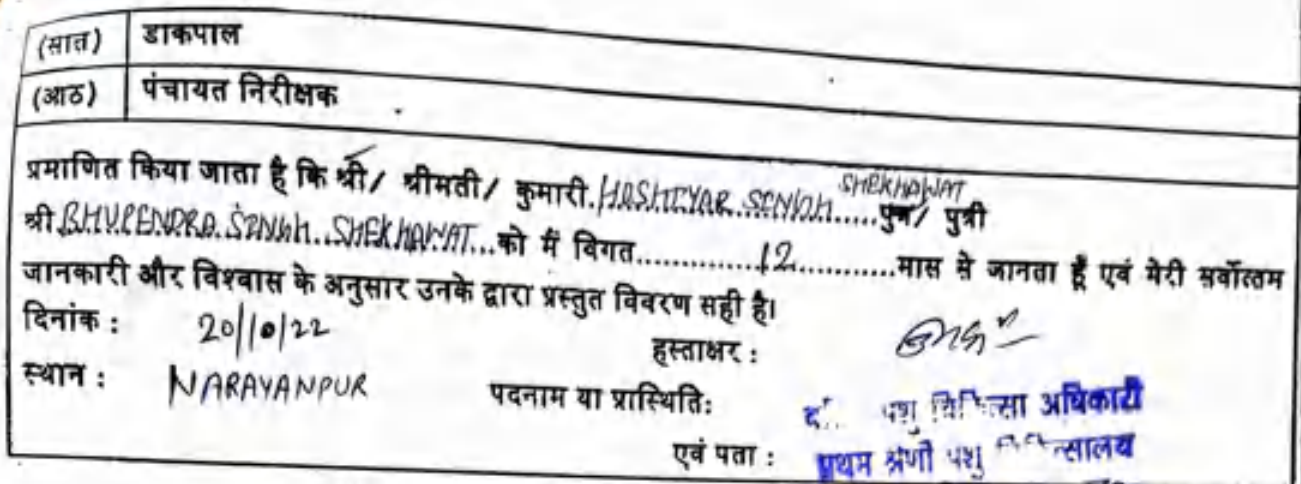 (सात) डाकपाल
(आठ) पंचायत निरीक्षक
प्रमाणित किया जाता है कि श्री/ श्रीमती/ कुमारी. HASHTYAR SINGH SHEKHAWAT पुत्र/ पुत्री
श्री BHUPENDRA SINGH SHEKHAWAT...को मैं विगत..............12............मास से जानता हूँ एवं मेरी सर्वोत्तम
जानकारी और विश्वास के अनुसार उनके द्वारा प्रस्तुत विवरण सही है।
दिनांक : 20/10/22 हस्ताक्षर :
स्थान : NARAYANPUR पदनाम या प्रास्थिति: पशु चिकित्सा अधिकारी
एवं पता : प्रथम श्रेणी पशु चिकित्सालय